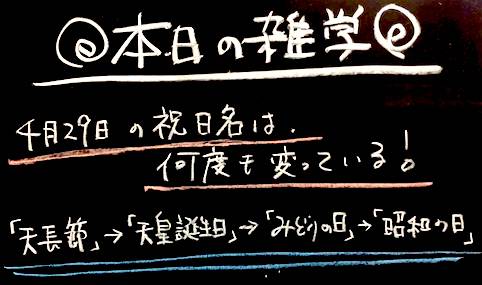 本日の雑学
4月29日の祝日名は、
何度も変っている!
「天長節」→「天皇誕生日」→「みどりの日」→「昭和の日」